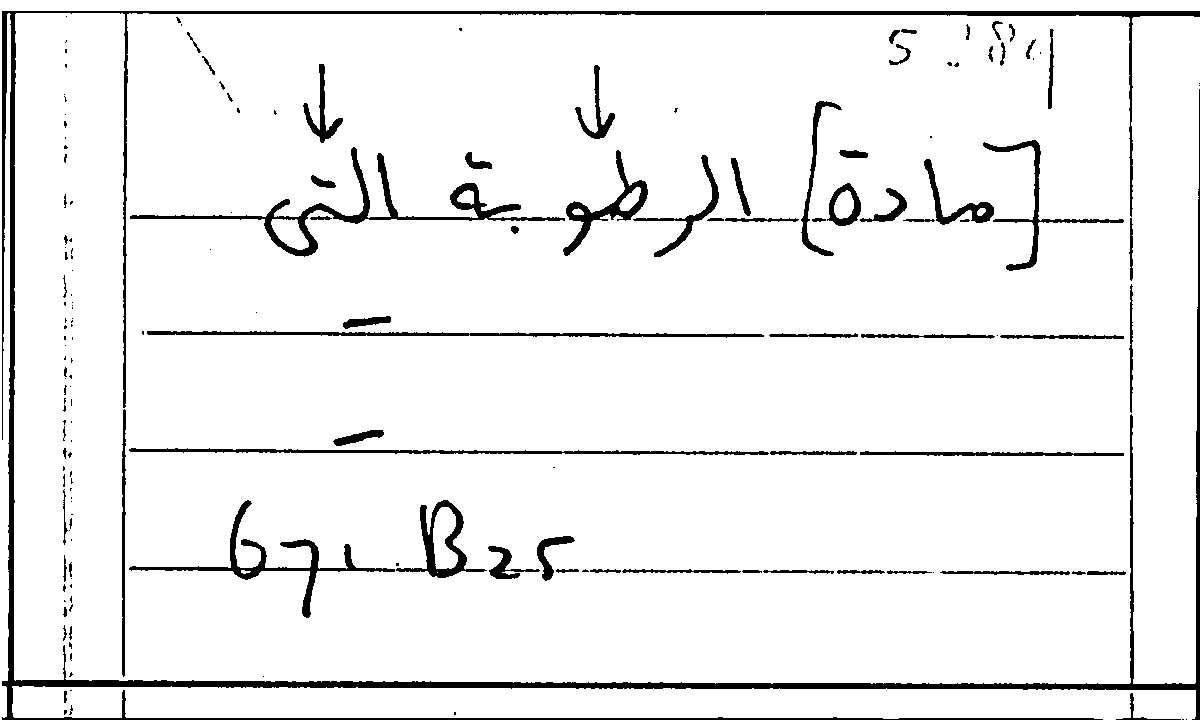 [مادة] الرطوبة التى
671. B25